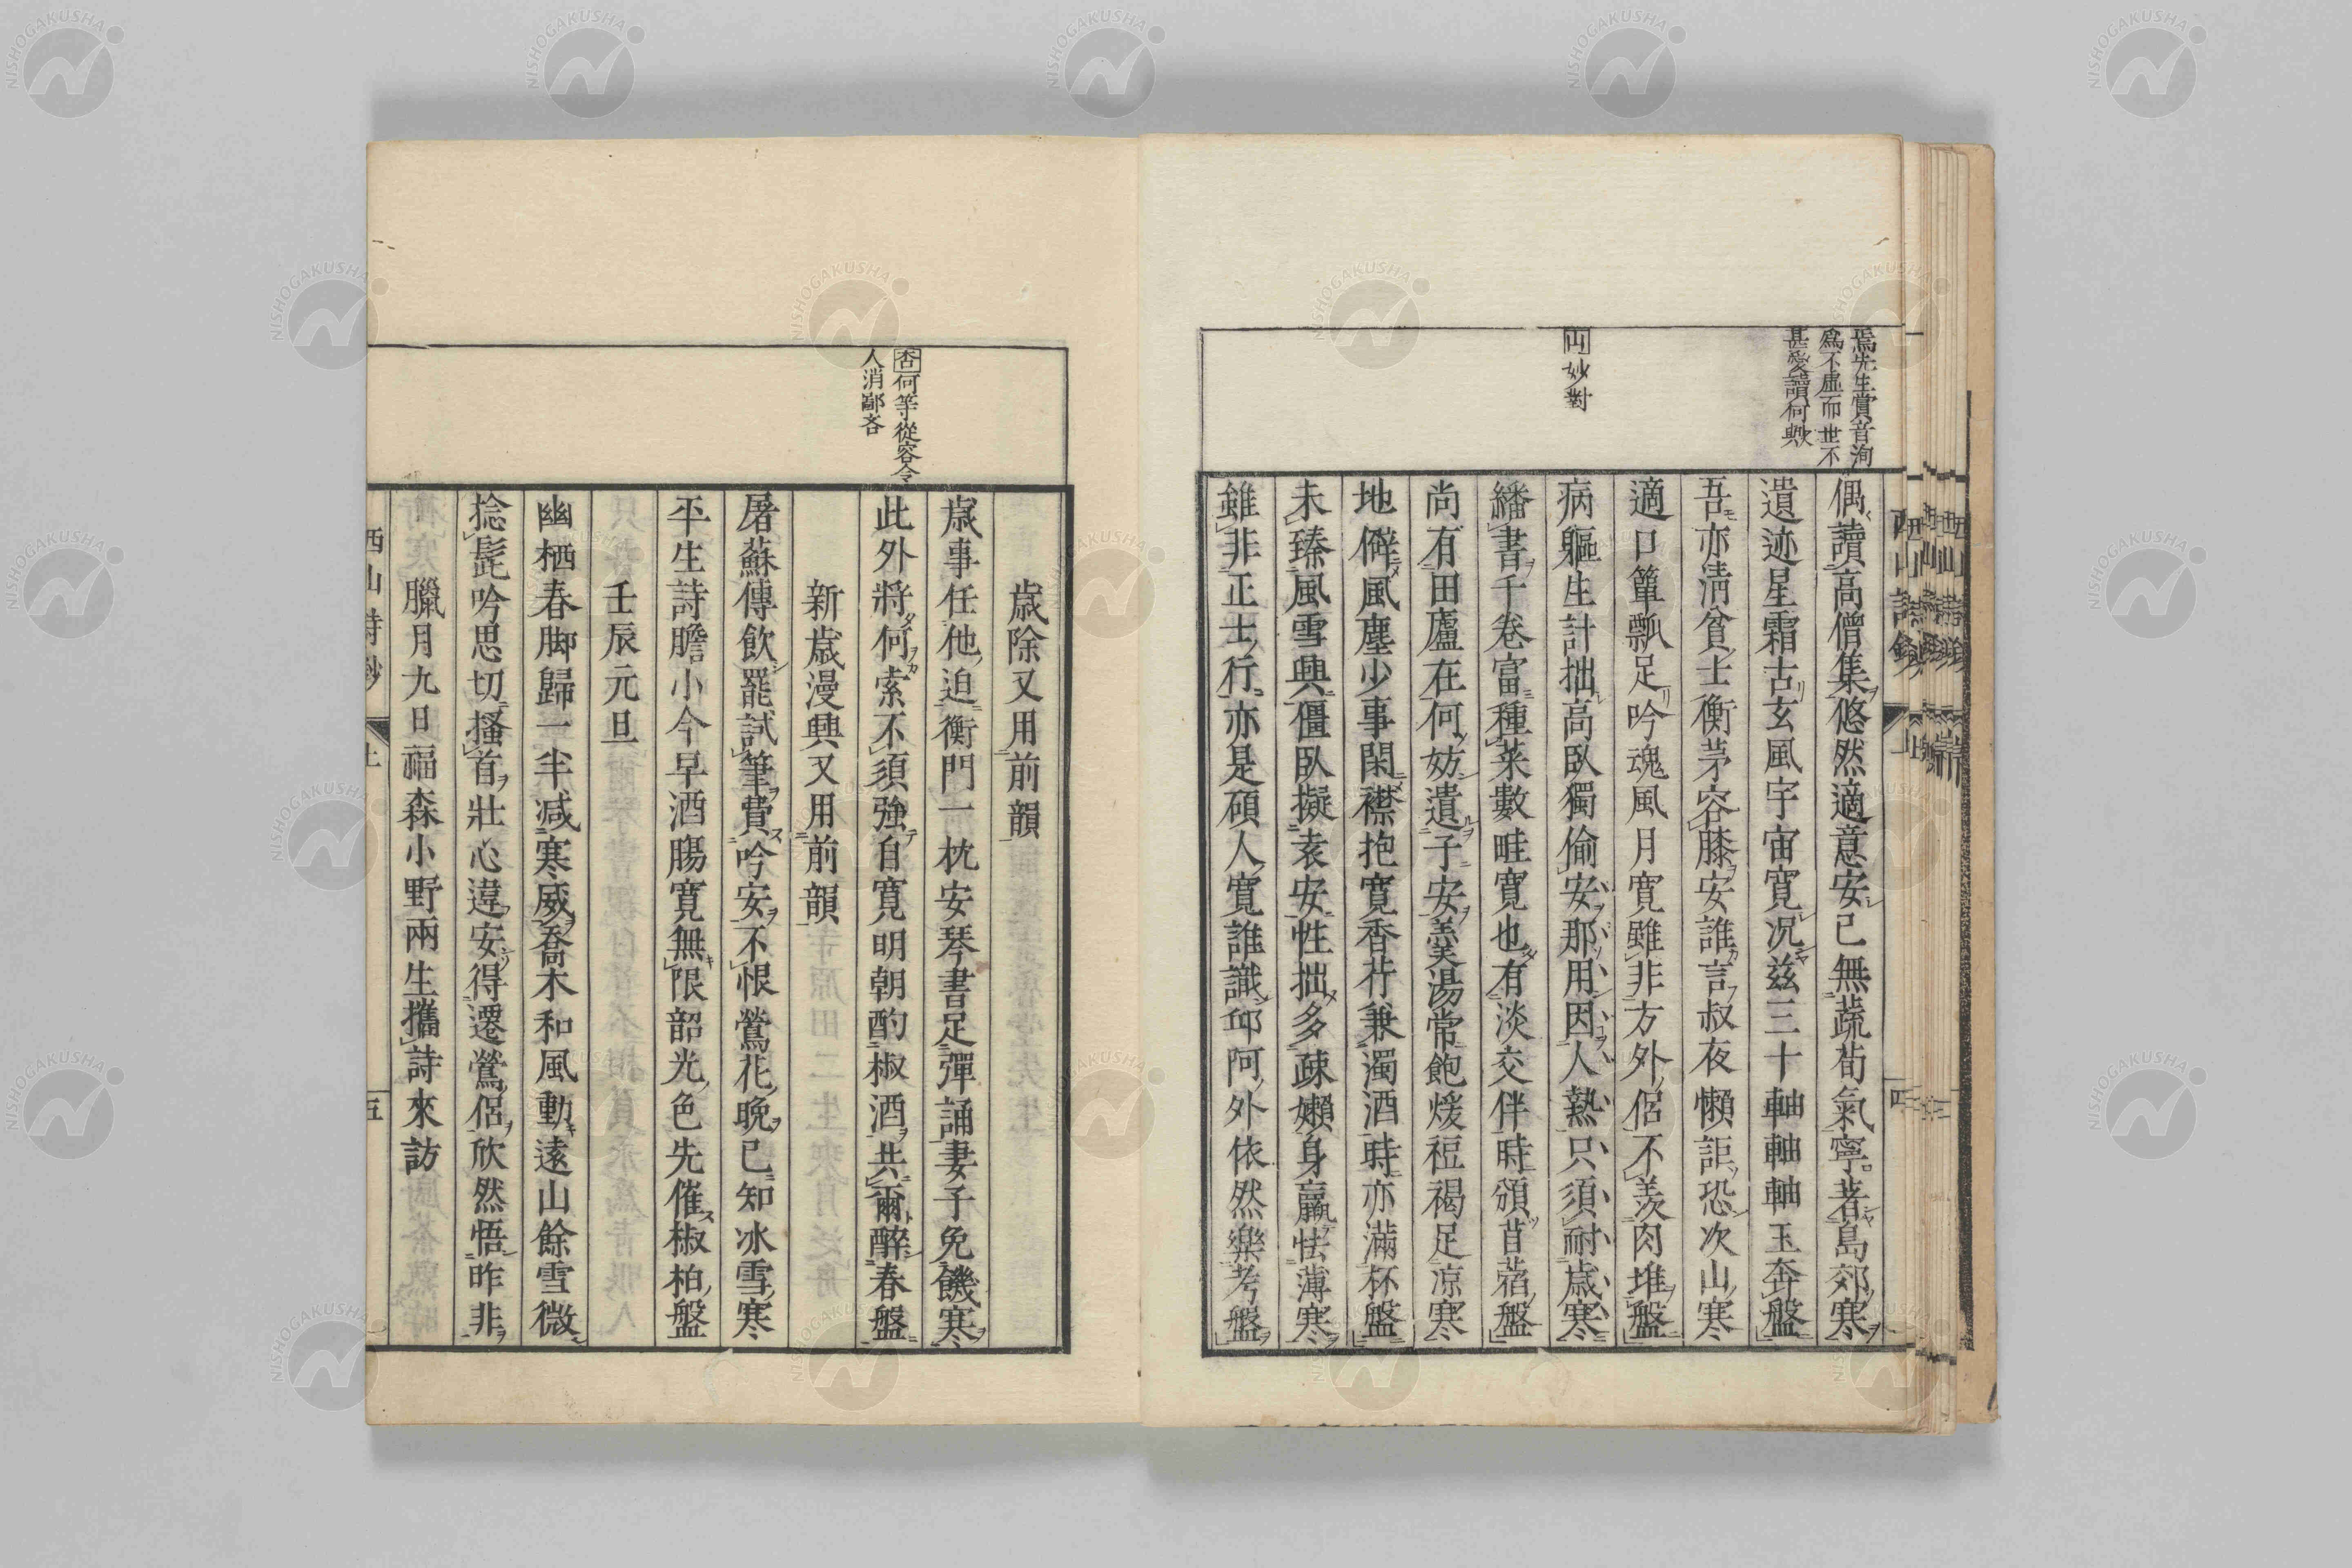 焉先生賞音洵
爲不虛而世不
甚愛讀何歟
妙對
偶讀高僧集悠然適意安已無蔬荀氣寧著島郊寒
遺迹星霜古玄風宇宙寬况兹三十軸軸軸玉奔盤
吾亦淸貧士衡茅容膝安誰言叔夜懶詎恐次山寒
適口簞瓢足吟魂風月寬雖非方外侶不羨肉堆盤
病軀生計拙高臥獨偷安那用因人熱只須耐歳寒
繙書千卷富種菜數畦寬也有淡交伴時頒苜蓿盤
尚有田廬在何妨遺子安羹湯常飽煖裋褐足凉寒
地僻風塵少事閑襟抱寬香芹兼濁酒時亦滿杯盤
未臻風雪興僵臥擬袁安性拙多疎嬾身羸怯薄寒
雖非正士行亦是碩人寬誰識邱阿外依然樂考盤
西山詩鈔
上
四
否何等從容令
人消鄙吝
歳除又用前韻
歳事任他迫衡門一枕安琴書足彈誦妻子免饑寒
此外將何索不須強自寬明朝酌椒酒共爾醉春盤
新歳漫興又用前韻
屠蘇傳飮罷試筆費吟安不恨鶯花晩已知冰雪寒
平生詩膽小今早酒腸寬無限韶光色先催椒柏盤
壬辰元旦
幽栖春脚歸一半减寒威喬木和風動遠山餘雪微
捻髭吟思切搔首壯心違安得遷鶯侶欣然悟昨非
臘月九日福森小野兩生攜詩來訪
西山詩鈔
上
五
NISHOGAKUSHA